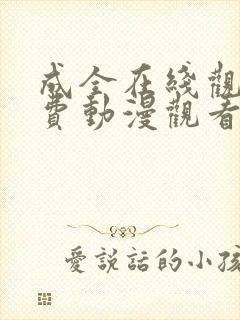 成全在綫觀
費動漫觀看
愛說話的小孩